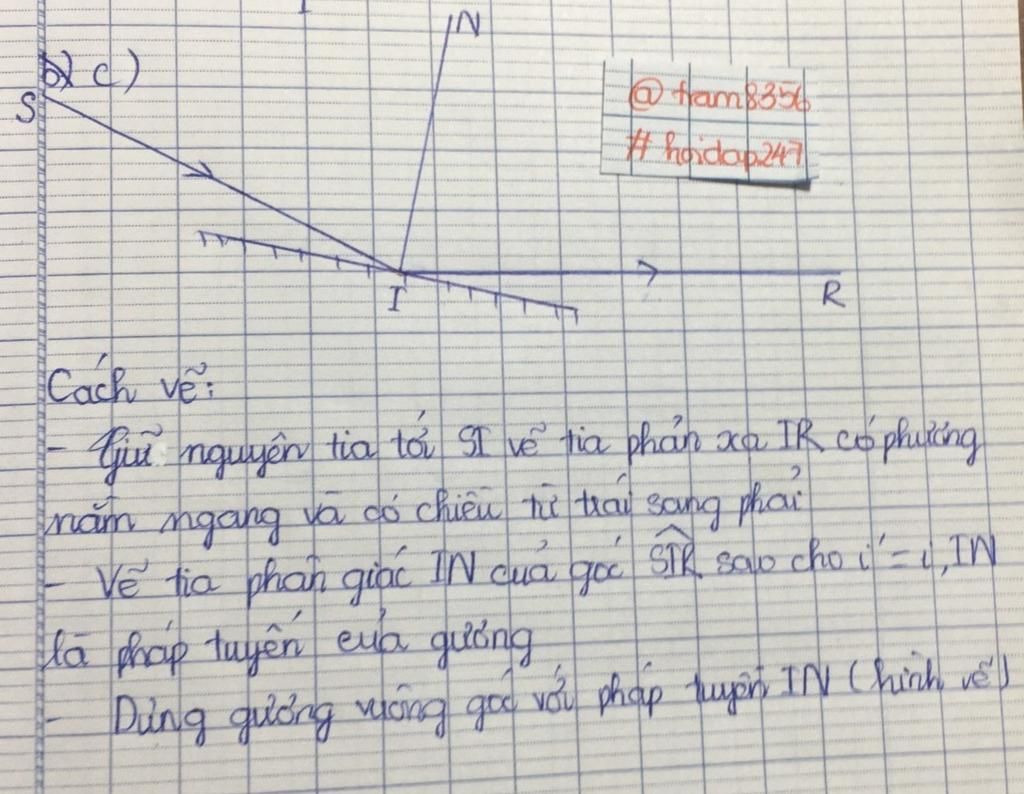 N
b) c)
S
@ tram8356
# hoidap247
I
R
Cách vẽ:
- Giữ nguyên tia tới SI vẽ tia phản xạ IR có phương
nằm ngang và có chiều từ trái sang phải
- Vẽ tia phân giác IN của góc SIR sao cho i' = i, IN
là pháp tuyến của gương
- Dựng gương vuông góc với pháp tuyến IN (hình vẽ)